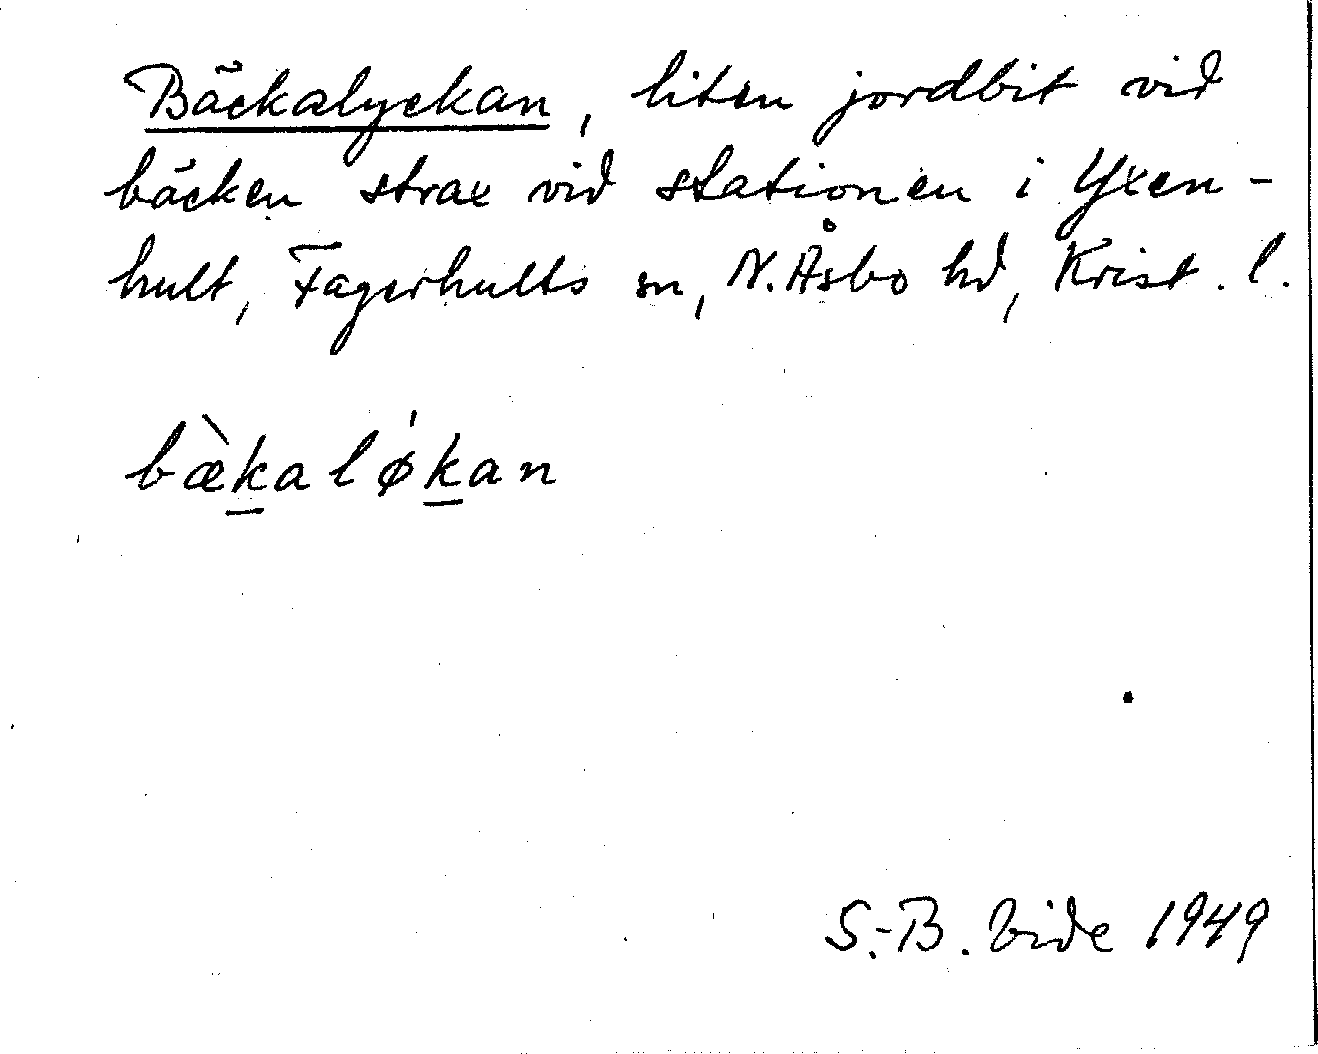 Bäckalyckan, liten jordbit vid
bäcken strax vid stationen i Yxen-
hult, Fagerhults sn, N. Åsbo hd, Krist. l.
bæ̀k̲aløˈk̲an
S.-B. Vide 1949